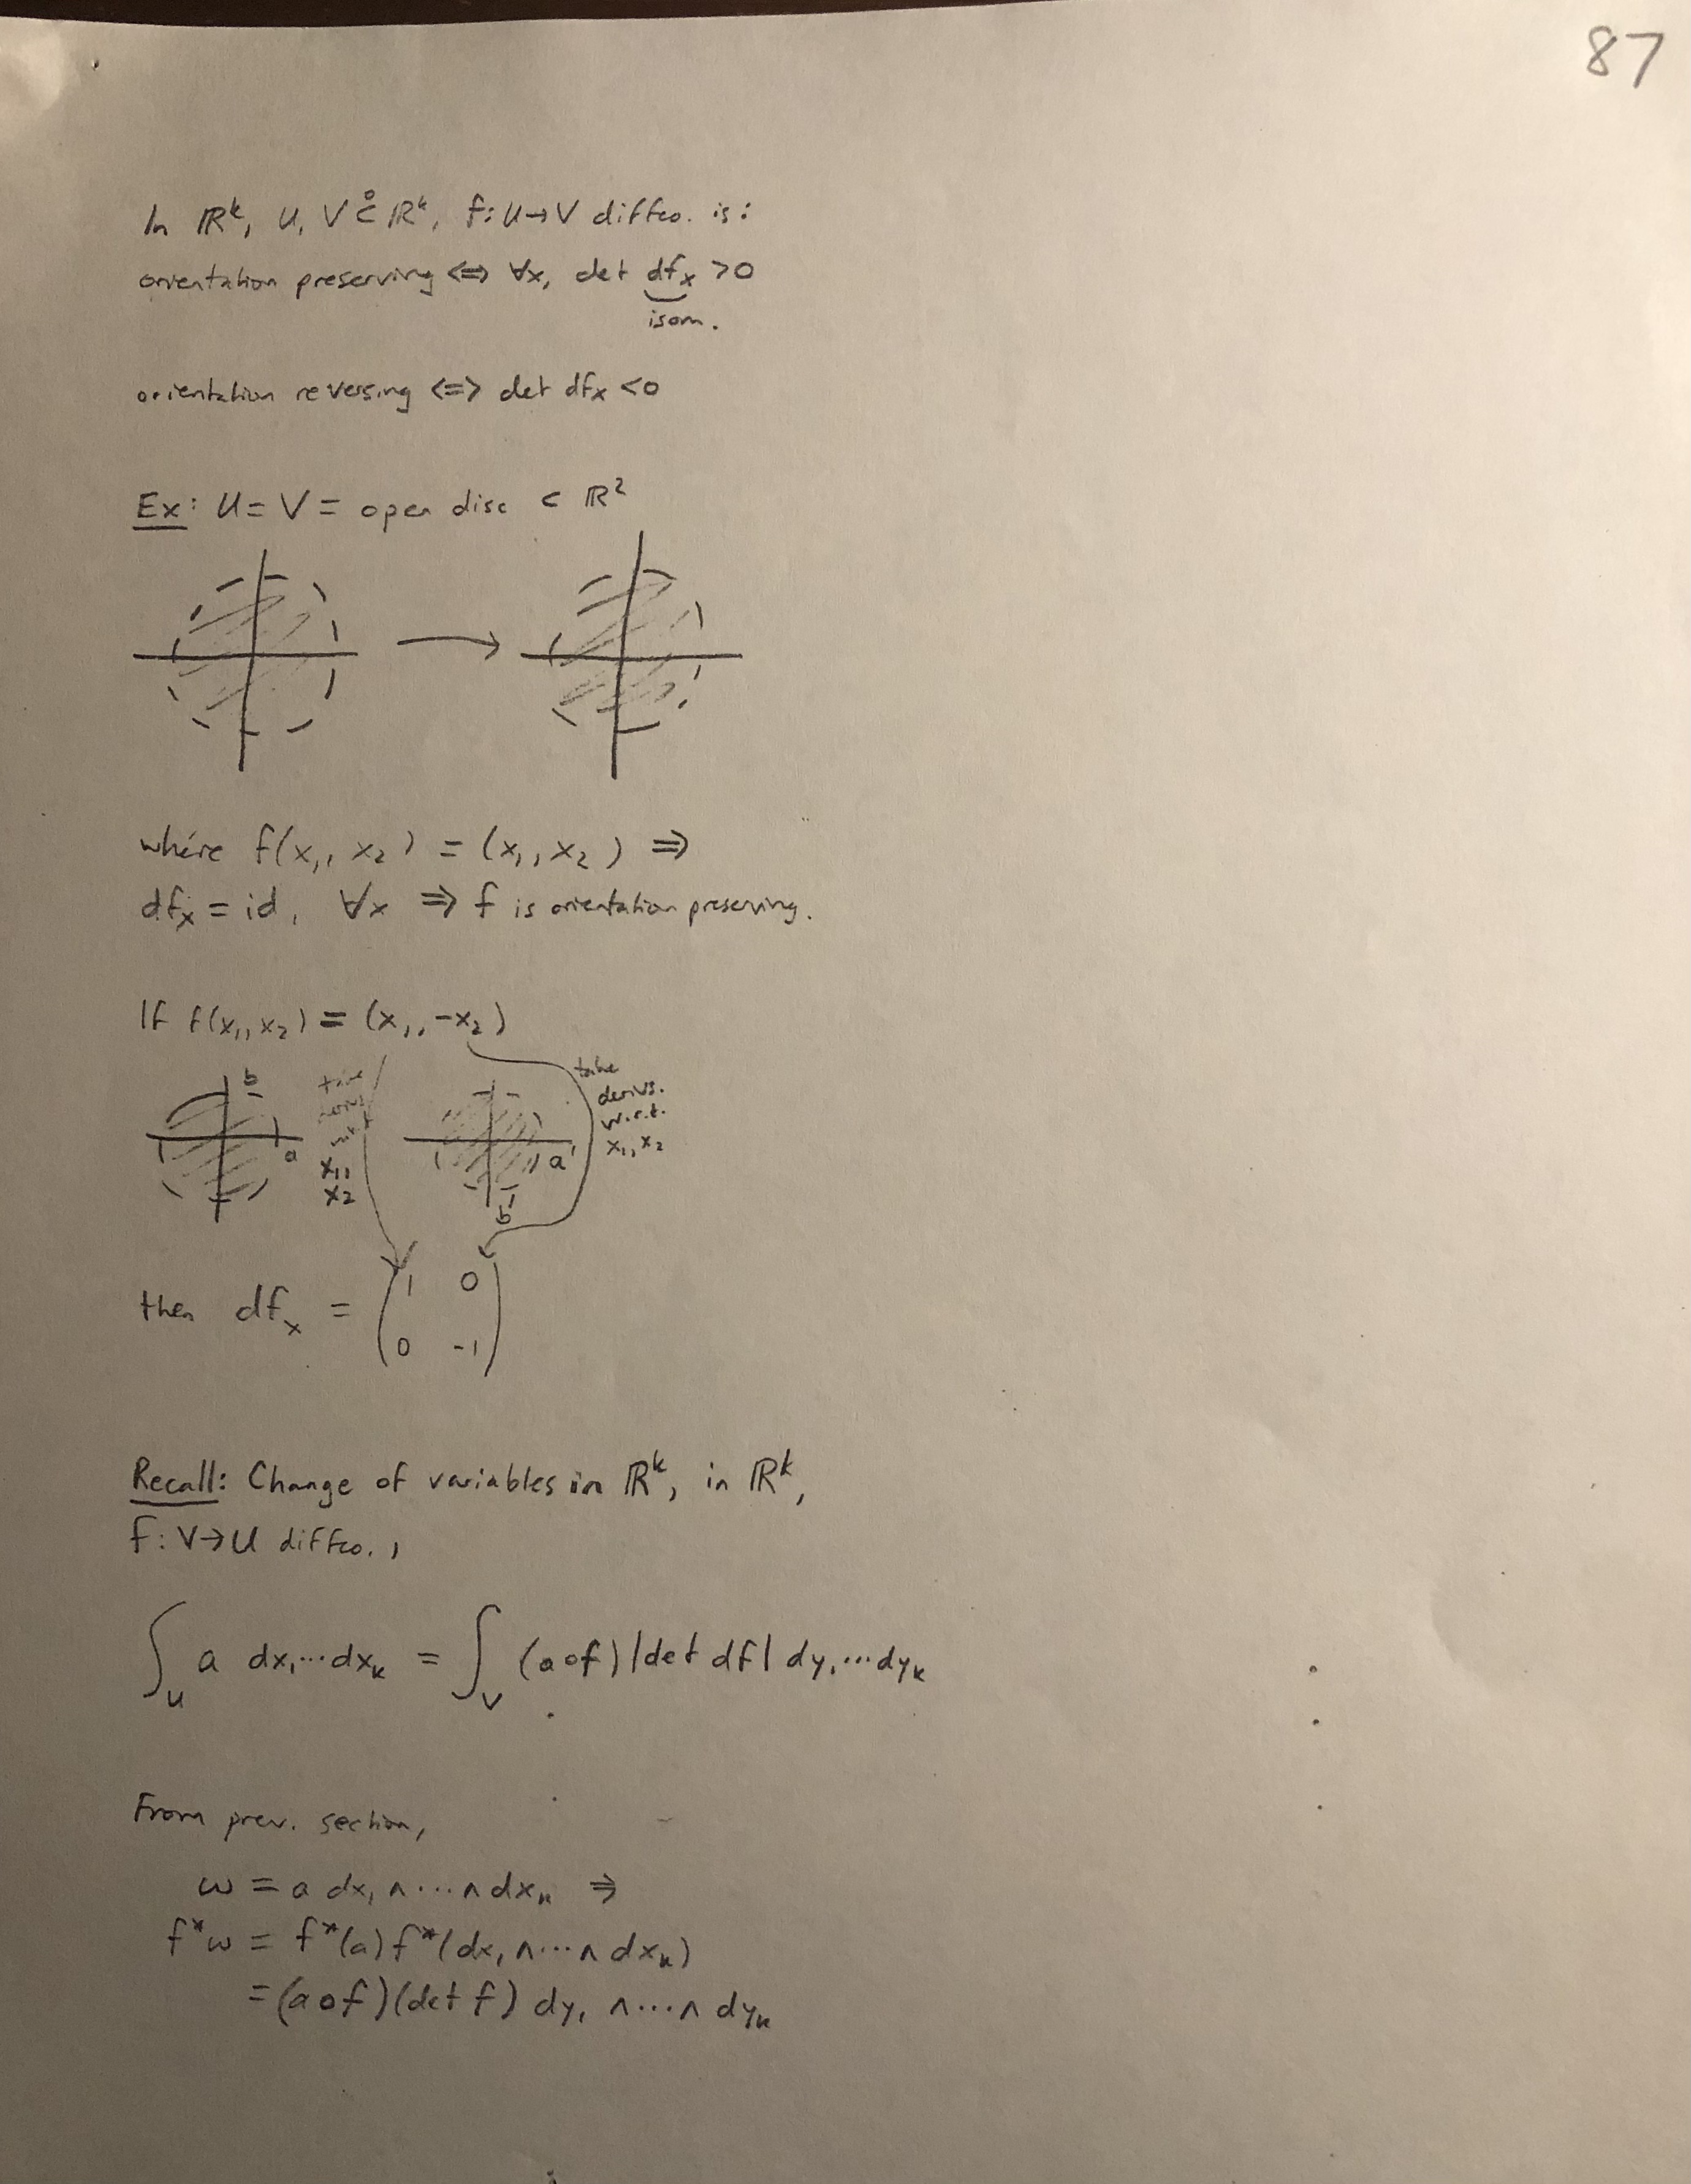 87
In ℝᵏ, U, V ⊂° ℝᵏ, f: U → V diffeo. is:
orientation preserving ⟺ ∀x, det dfₓ > 0
isom.
orientation reversing ⟺ det dfₓ < 0
Ex: U = V = open disc ⊂ ℝ²
where f(x₁, x₂) = (x₁, x₂) ⇒
dfₓ = id, ∀x ⇒ f is orientation preserving.
If f(x₁, x₂) = (x₁, -x₂)
b
a
take
x₁,
x₂
a'
b'
take
derivs.
w.r.t.
x₁, x₂
then dfₓ = ( 1 0
0 -1 )
Recall: Change of variables in ℝᵏ, in ℝᵏ,
f: V → U diffeo.,
∫_U a dx₁⋯dxₖ = ∫_V (a∘f) |det df| dy₁⋯dyₖ
From prev. section,
ω = a dx₁ ∧ ⋯ ∧ dxₖ ⇒
f*ω = f*(a) f*(dx₁ ∧ ⋯ ∧ dxₖ)
= (a∘f)(det f) dy₁ ∧ ⋯ ∧ dyₖ